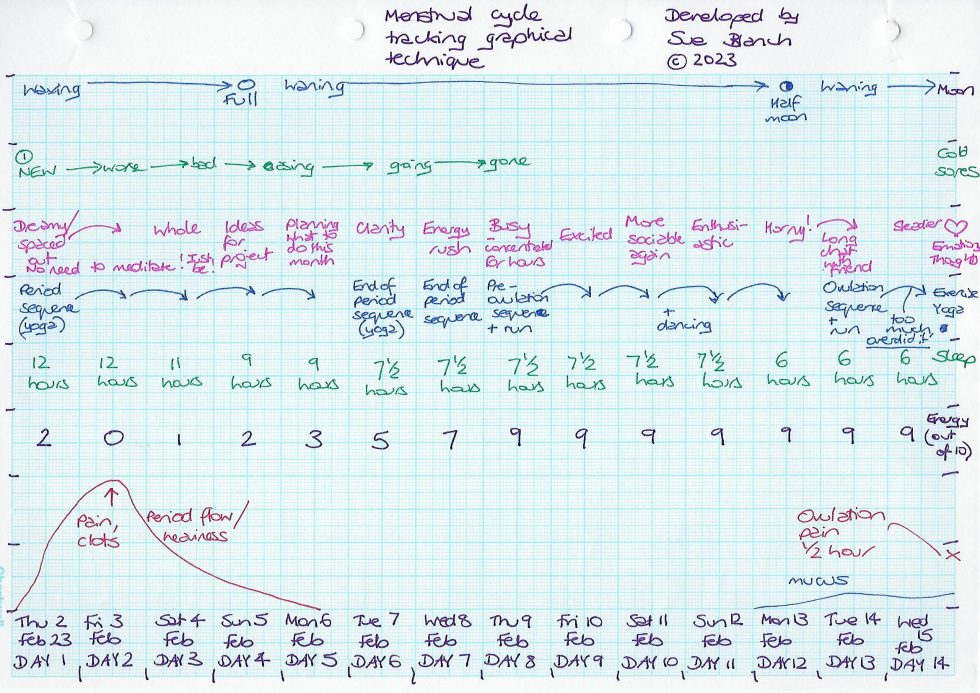 Menstrual cycle
tracking graphical
technique
Developed by
Sue Blanch
© 2023
Waxing
Full
Waning
Half
moon
Waning
Moon
① NEW → worse → bad → easing → going → gone
Cold
sores
Dreamy/
spaced
out
No need to meditate! Just
be!
Whole
Ideas
for
project
Planning
what to
do this
month
Clarity
Energy
rush
Busy
- concentrated
for hours
Excited
More
sociable
again
Enthusi-
astic
Horny!
Long
chat
with
friend
Steadier
Emotion
Thoughts
Period
sequence
(yoga)
End of
period
sequence
(yoga)
End of
Period
sequence
Pre-
ovulation
sequence
+ run
+
dancing
Ovulation
Sequence
+
run
too
much,
overdid it
Exercise
Yoga
12
hours
12
hours
11
hours
9
hours
9
hours
7½
hours
7½
hours
7½
hours
7½
hours
7½
hours
7½
hours
6
hours
6
hours
6
hours
Sleep
2 0 1 2 3 5 7 9 9 9 9 9 9 9
Energy
(out
of 10)
↑
Pain,
clots
Period flow/
heaviness
Ovulation
pain
½ hour
x
mucus
Thu 2
Feb 23
DAY 1
Fri 3
Feb
DAY 2
Sat 4
Feb
DAY 3
Sun 5
Feb
DAY 4
Mon 6
Feb
DAY 5
Tue 7
Feb
DAY 6
Wed 8
Feb
DAY 7
Thu 9
Feb
DAY 8
Fri 10
Feb
DAY 9
Sat 11
Feb
DAY 10
Sun 12
Feb
DAY 11
Mon 13
Feb
DAY 12
Tue 14
Feb
DAY 13
Wed
15
feb
DAY 14